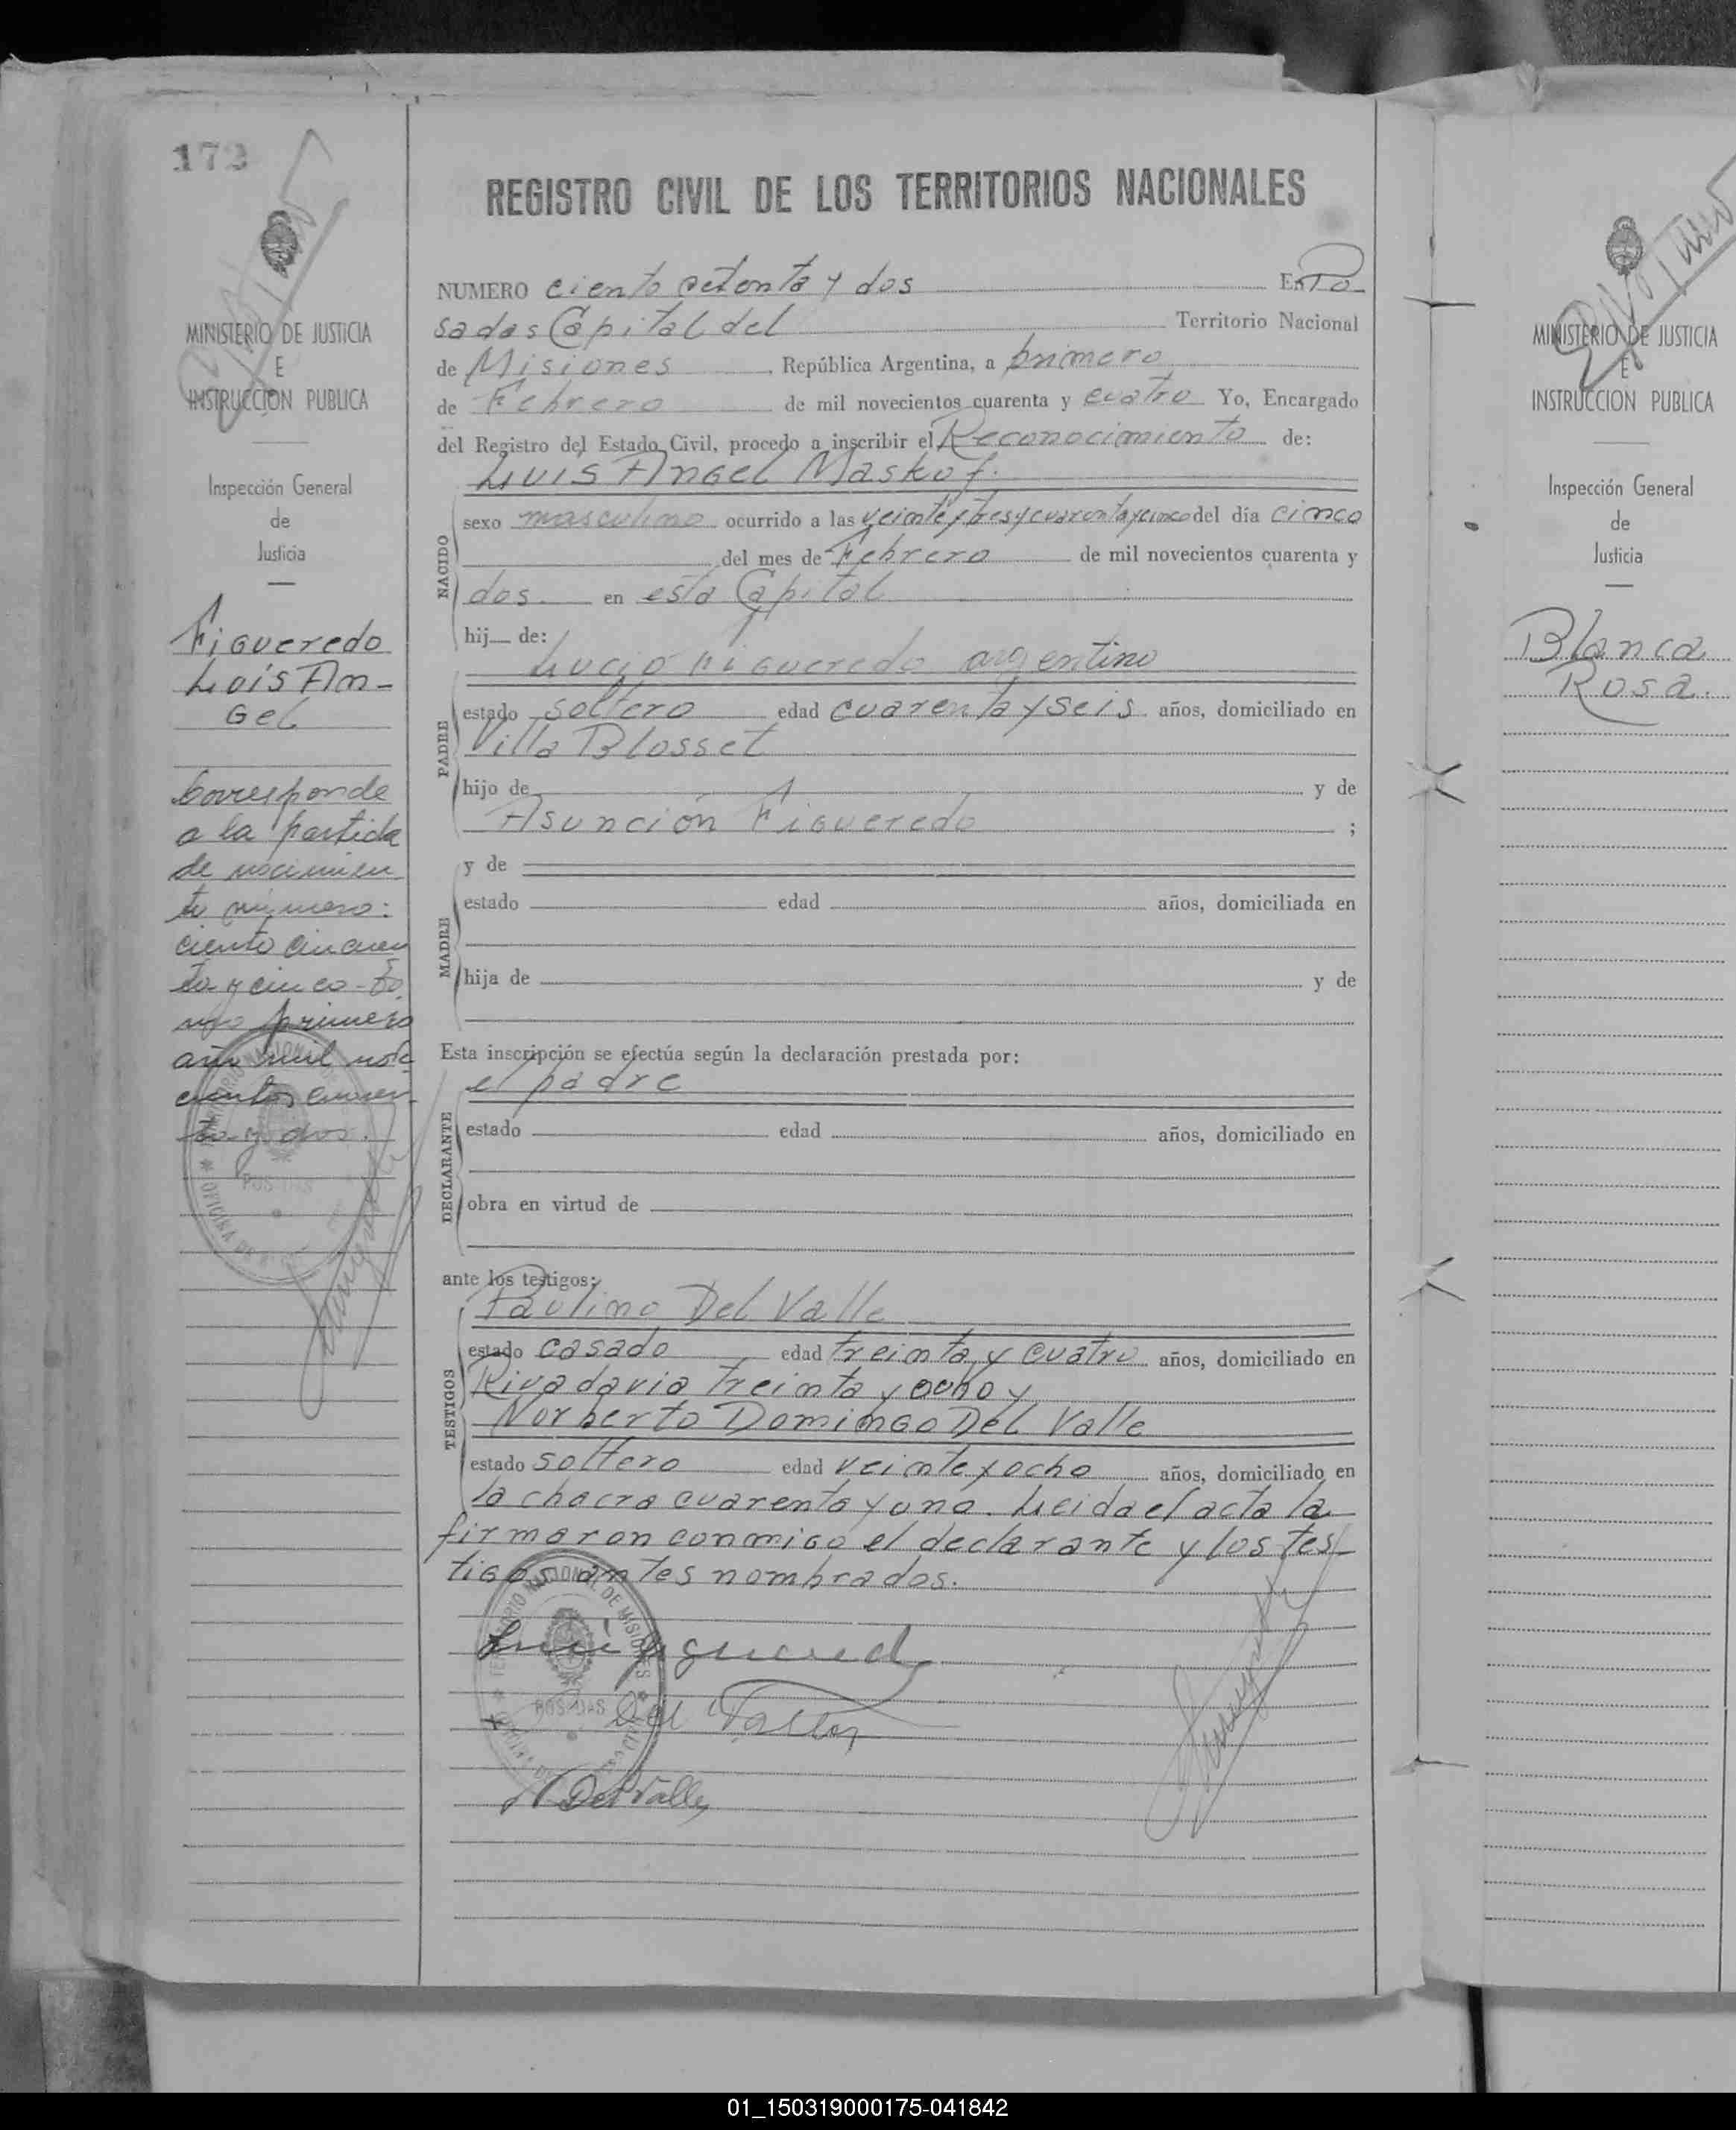 172
MINISTERIO DE JUSTICIA
E
INSTRUCCION PUBLICA
Inspección General
de
Justicia
Figueredo
Luis An-
gel
Corresponde
a la partida
de nacimien
to número:
ciento cincuen
ta y cinco - to
mo primero
año mil nove
cientos cuaren
ta y dos.
REGISTRO CIVIL DE LOS TERRITORIOS NACIONALES
NUMERO ciento setenta y dos En Po-
sadas Capital del Territorio Nacional
de Misiones República Argentina, a primero
de Febrero de mil novecientos cuarenta y cuatro Yo, Encargado
del Registro del Estado Civil, procedo a inscribir el Reconocimiento de:
Luis Angel Maskof.
NACIDO
sexo masculino ocurrido a las veinte y tres y cuarenta y cinco del día cinco
del mes de Febrero de mil novecientos cuarenta y
dos. en esta Capital
hij de:
Lucio Figueredo argentino
PADRE
estado soltero edad cuarenta y seis años, domiciliado en
Villa Blosset
hijo de y de
Asunción Figueredo ;
y de
MADRE
estado edad años, domiciliada en
hija de y de
Esta inscripción se efectúa según la declaración prestada por:
el padre
DECLARANTE
estado edad años, domiciliado en
obra en virtud de
ante los testigos:
Paulino Del Valle
TESTIGOS
estado casado edad treinta y cuatro años, domiciliado en
Rivadavia treinta y ocho y
Norberto Domingo Del Valle
estado soltero edad veinte y ocho años, domiciliado en
la chacra cuarenta y una. Leida el acta la
firmaron conmigo el declarante y los tes-
tigos antes nombrados.
TERRITORIO NACIONAL DE MISIONES
POSADAS
Del Valle
N Del Valle
MINISTERIO DE JUSTICIA
E
INSTRUCCION PUBLICA
Inspección General
de
Justicia
Blanca
Rosa.
01_150319000175-041842